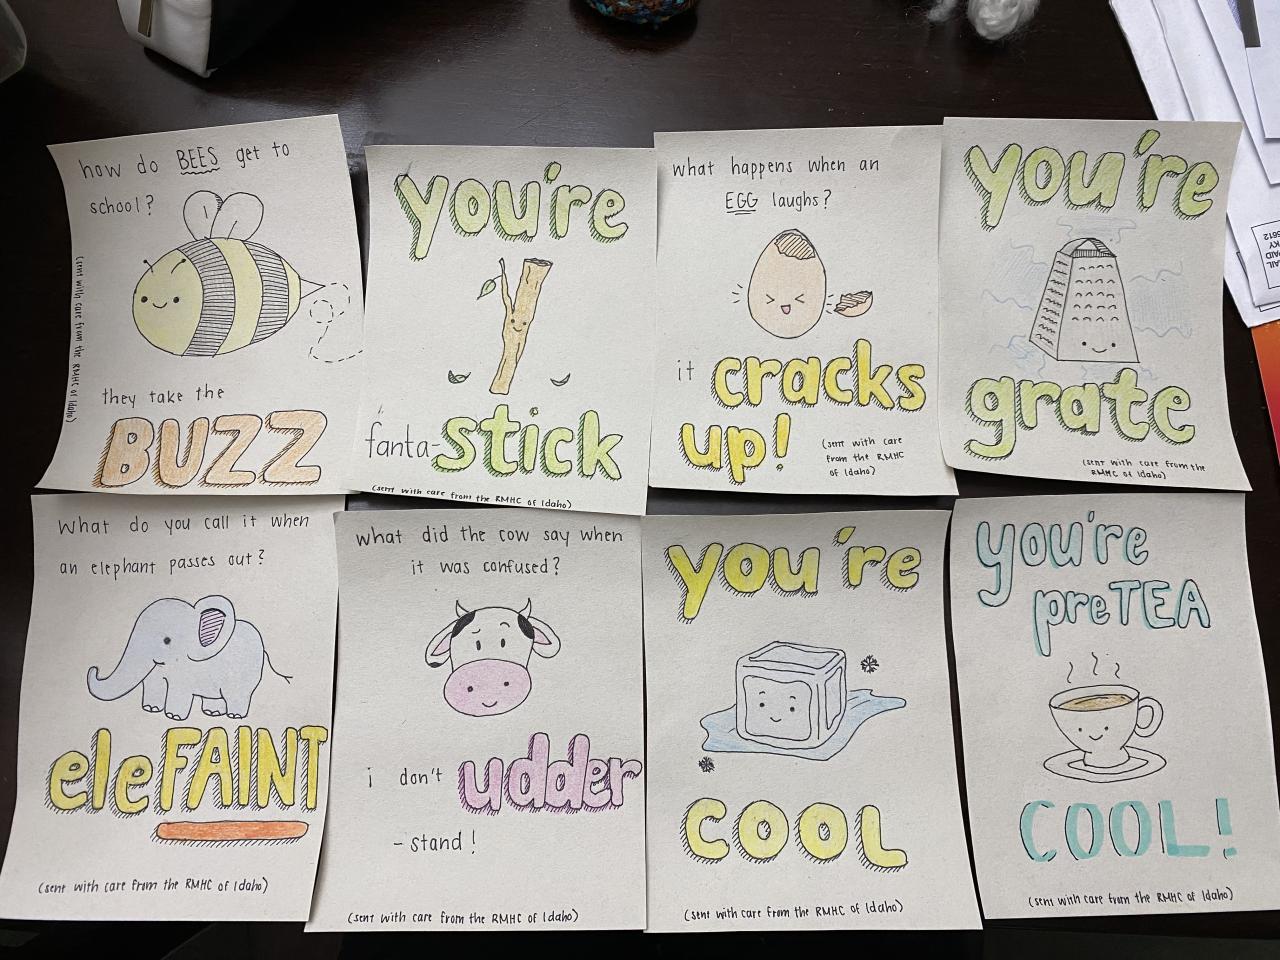 how do BEES get to
school?
(sent with care from the RMHC of Idaho)
they take the
BUZZ
you're
fanta-stick
(sent with care from the RMHC of Idaho)
what happens when an
EGG laughs?
it cracks
up!
(sent with care
from the RMHC
of Idaho)
you're
grate
(sent with care from the
RMHC of Idaho)
what do you call it when
an elephant passes out?
eleFAINT
(sent with care from the RMHC of Idaho)
what did the cow say when
it was confused?
i don't udder
-stand!
(sent with care from the RMHC of Idaho)
you're
COOL
(sent with care from the RMHC of Idaho)
you're
preTEA
COOL!
(sent with care from the RMHC of Idaho)